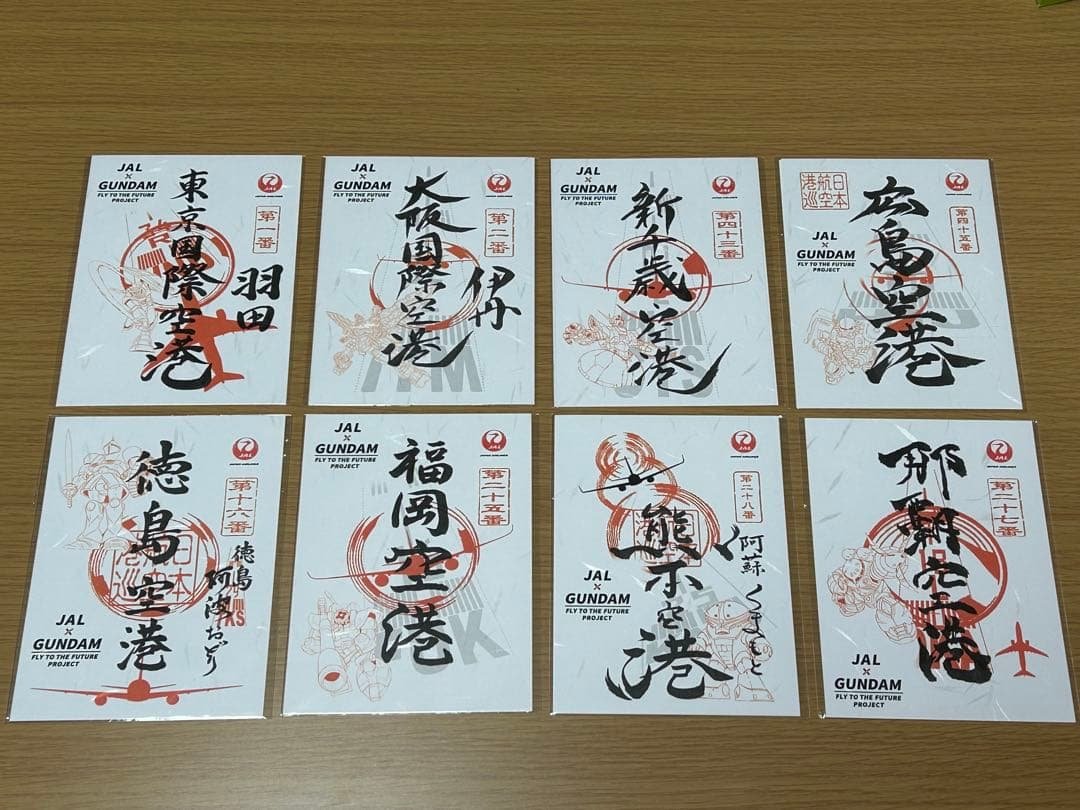 JAL
×
GUNDAM
FLY TO THE FUTURE
PROJECT
東京国際空港
羽田
第一番
JAL
JAPAN AIRLINES
JAL
×
GUNDAM
FLY TO THE FUTURE
PROJECT
大阪国際空港
伊丹
第二番
JAL
JAPAN AIRLINES
ITM
JAL
×
GUNDAM
FLY TO THE FUTURE
PROJECT
新千歳空港
第四十三番
JAL
JAPAN AIRLINES
CTS
日本
航空
港巡
JAL
×
GUNDAM
FLY TO THE FUTURE
PROJECT
広島空港
第四十五番
JAL
JAPAN AIRLINES
徳島空港
徳島
阿波おどり
第十六番
JAL
JAPAN AIRLINES
JAL
×
GUNDAM
FLY TO THE FUTURE
PROJECT
JAL
×
GUNDAM
FLY TO THE FUTURE
PROJECT
福岡空港
第二十五番
JAL
JAPAN AIRLINES
熊本空港
阿蘇
くまもと
第二十八番
JAL
JAPAN AIRLINES
JAL
×
GUNDAM
FLY TO THE FUTURE
PROJECT
那覇空港
第二十七番
JAL
JAPAN AIRLINES
JAL
×
GUNDAM
FLY TO THE FUTURE
PROJECT